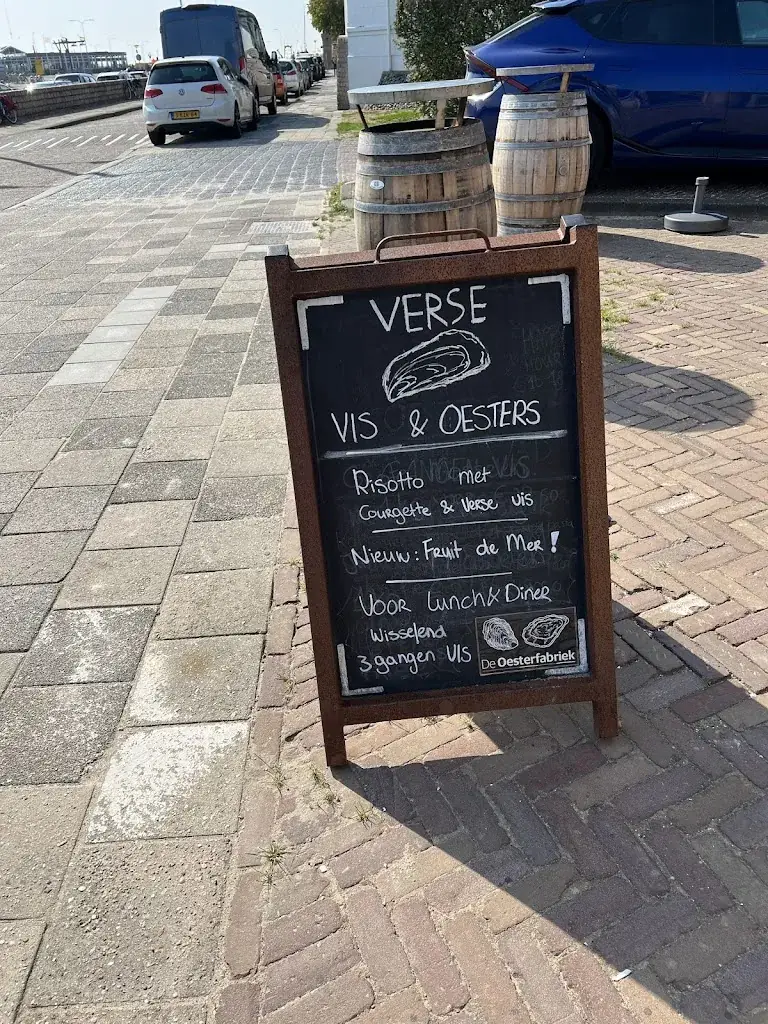 VERSE
VIS & OESTERS
Risotto met
Courgette & Verse vis
Nieuw: Fruit de Mer!
Voor Lunch & Diner
Wisselend
3 gangen VIS
De Oesterfabriek